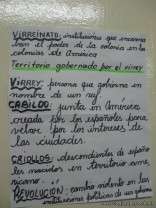 VIRREINATO: instituciones que encarna
ban el poder de la colonia en la
colonias de América
Territorio gobernado por el virey
VIRREY: persona que gobierna en
nombre de un rey
CABILDO: junta en América
creada por los españoles para
velar por los intereses de
las ciudades.
CRIOLLOS: descendientes de españo
les nacidos en territorio ame
ricano.
REVOLUCIÓN: cambio violento en las
instituciones políticas de un